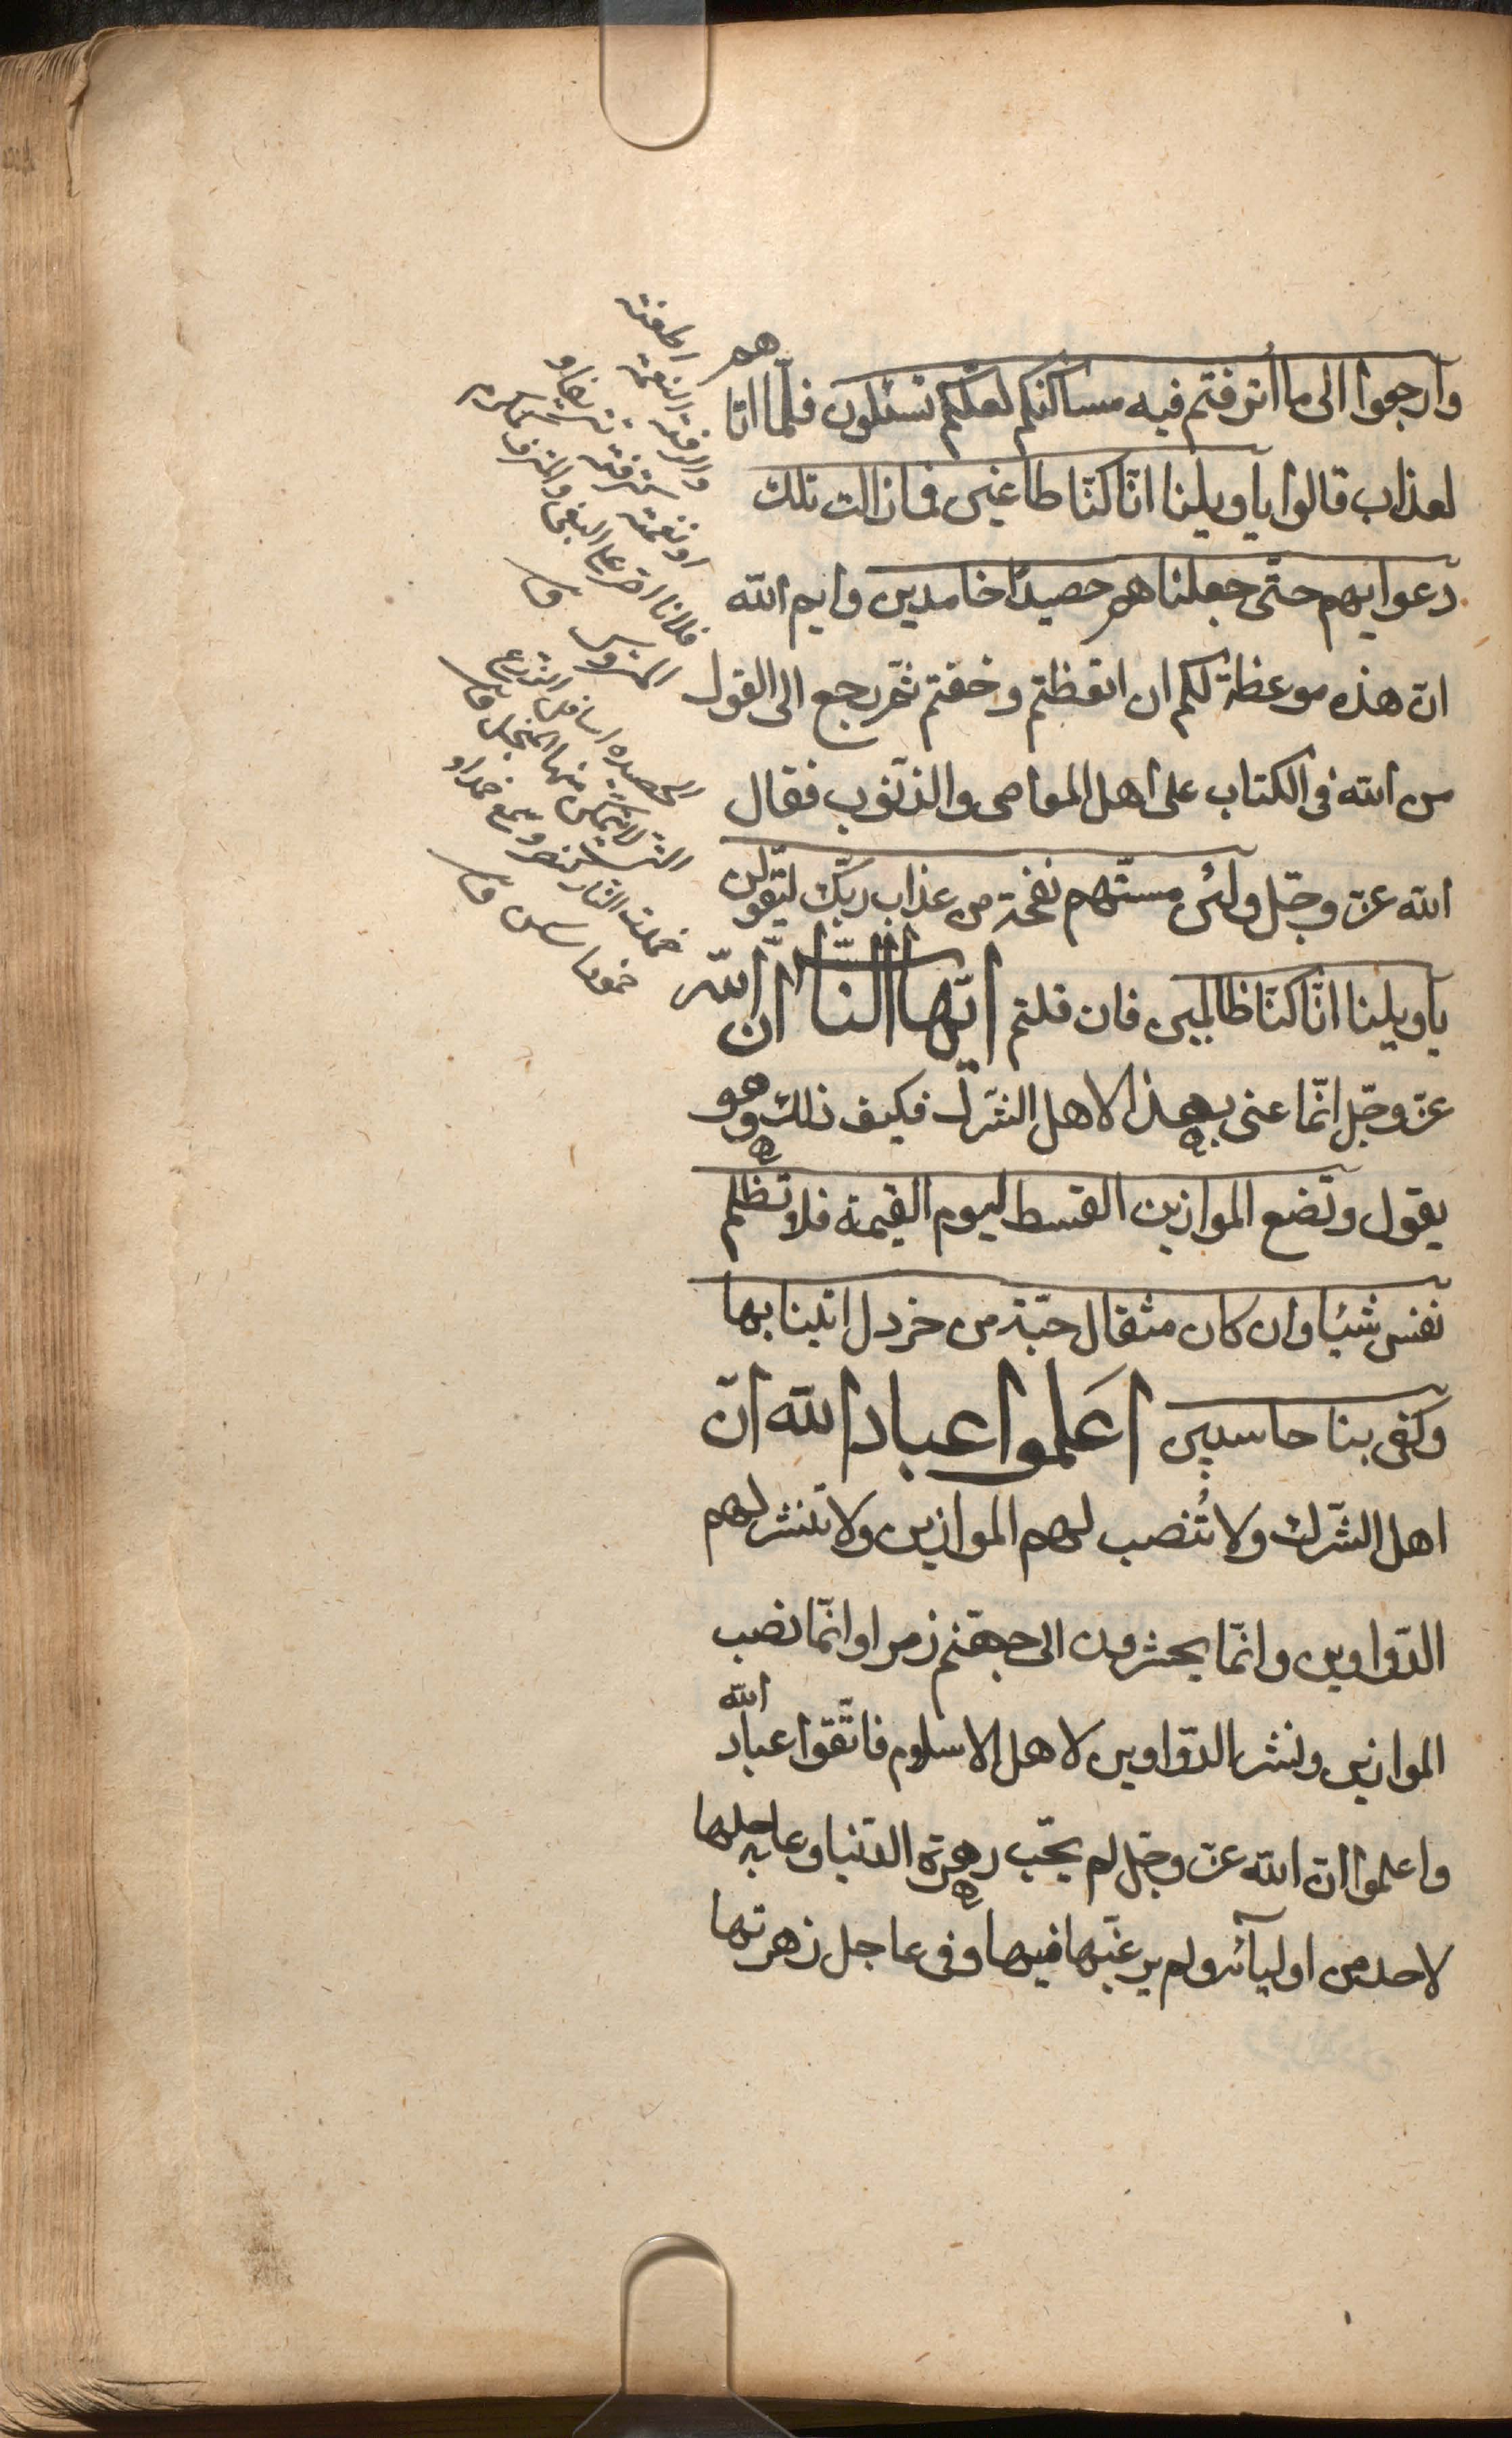 وارجعوا الى ما اترفتم فيه مساكنكم لعلّكم تسئلون فلمّا اتاهم
لعذاب قالوا ياويلنا انّا كنّا ظاغين فمازالت تلك
دعوايهم حتّى جعلناهم حصيدًا خامدين وايم الله
انّ هذه موعظة لكم ان اتعظتم وخفتم ثمّ رجع الى القول
من الله فى الكتاب على اهل المعاصى والذّنوب فقال
الله عزّ وجلّ ولئن مسّتهم نفحة من عذاب ربّك ليقولن
ياويلنا انّا كنّا ظالمين فان قلتم ايّها النّاس انّ الله
عزّ وجلّ انّما عنى بهذا لاهل الشّرك فكيف ذلك وهو
يقول ونضع الموازين القسط ليوم القيمة فلا تظلم
نفس شيئا وان كان مثقال حبّة من خردل اتينا بها
وكفى بنا حاسبين اعَلموا عباد الله انّ
اهل الشّرك ولا تُنصب لهم الموازين ولا تنشر لهم
الدّواوين وانّما يحشرون الى جهنّم زمرا وانّما نصب
الموازين ونشر الدّواوين لاهل الاسلام فاتّقوا عباد الله
واعلموا انّ الله عزّ وجلّ لم يحّب زهرة الدّنيا وعاجلها
لاحد من اوليآئه ولم يرغّبها فيها وفى عاجل زهرتها
اطغته
والترفة النعمة
فلانا اصرّ على البغى والمترف
المتروس ق
الحصيده اسافل الزرع
الّتى لايتمكّن منها المنجل ق
خمدت النار كنصر وسمع خمدا و
خمودا سكن ق